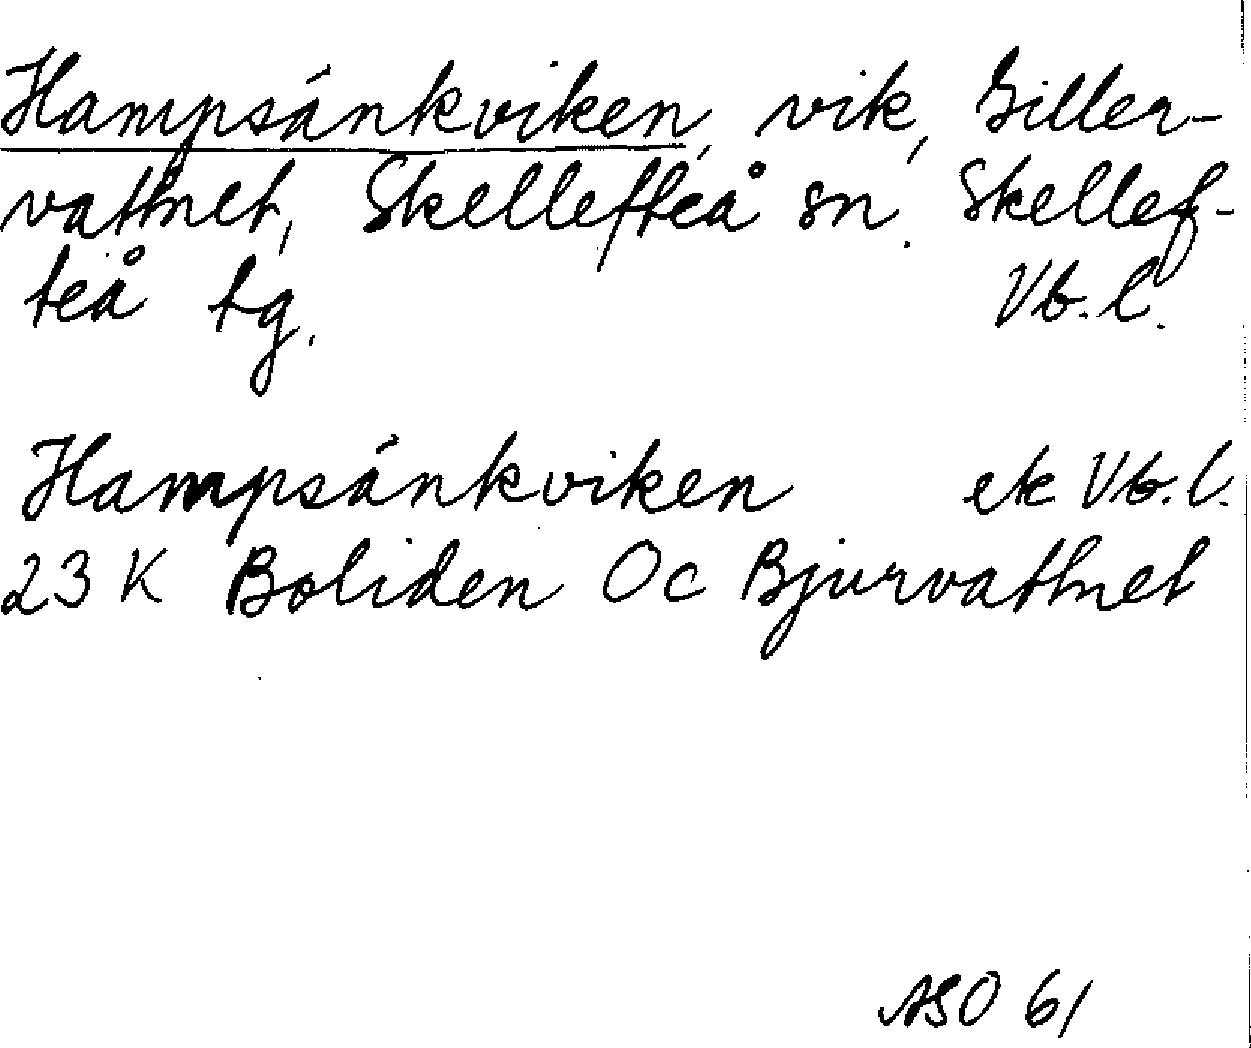 Hampsänkviken, vik, Giller-
vattnet, Skellefteå sn. Skellef-
teå tg. Vb. l.
Hampsänkviken ek Vb. l.
23 K Boliden Oc Bjurvattnet
ASO 61